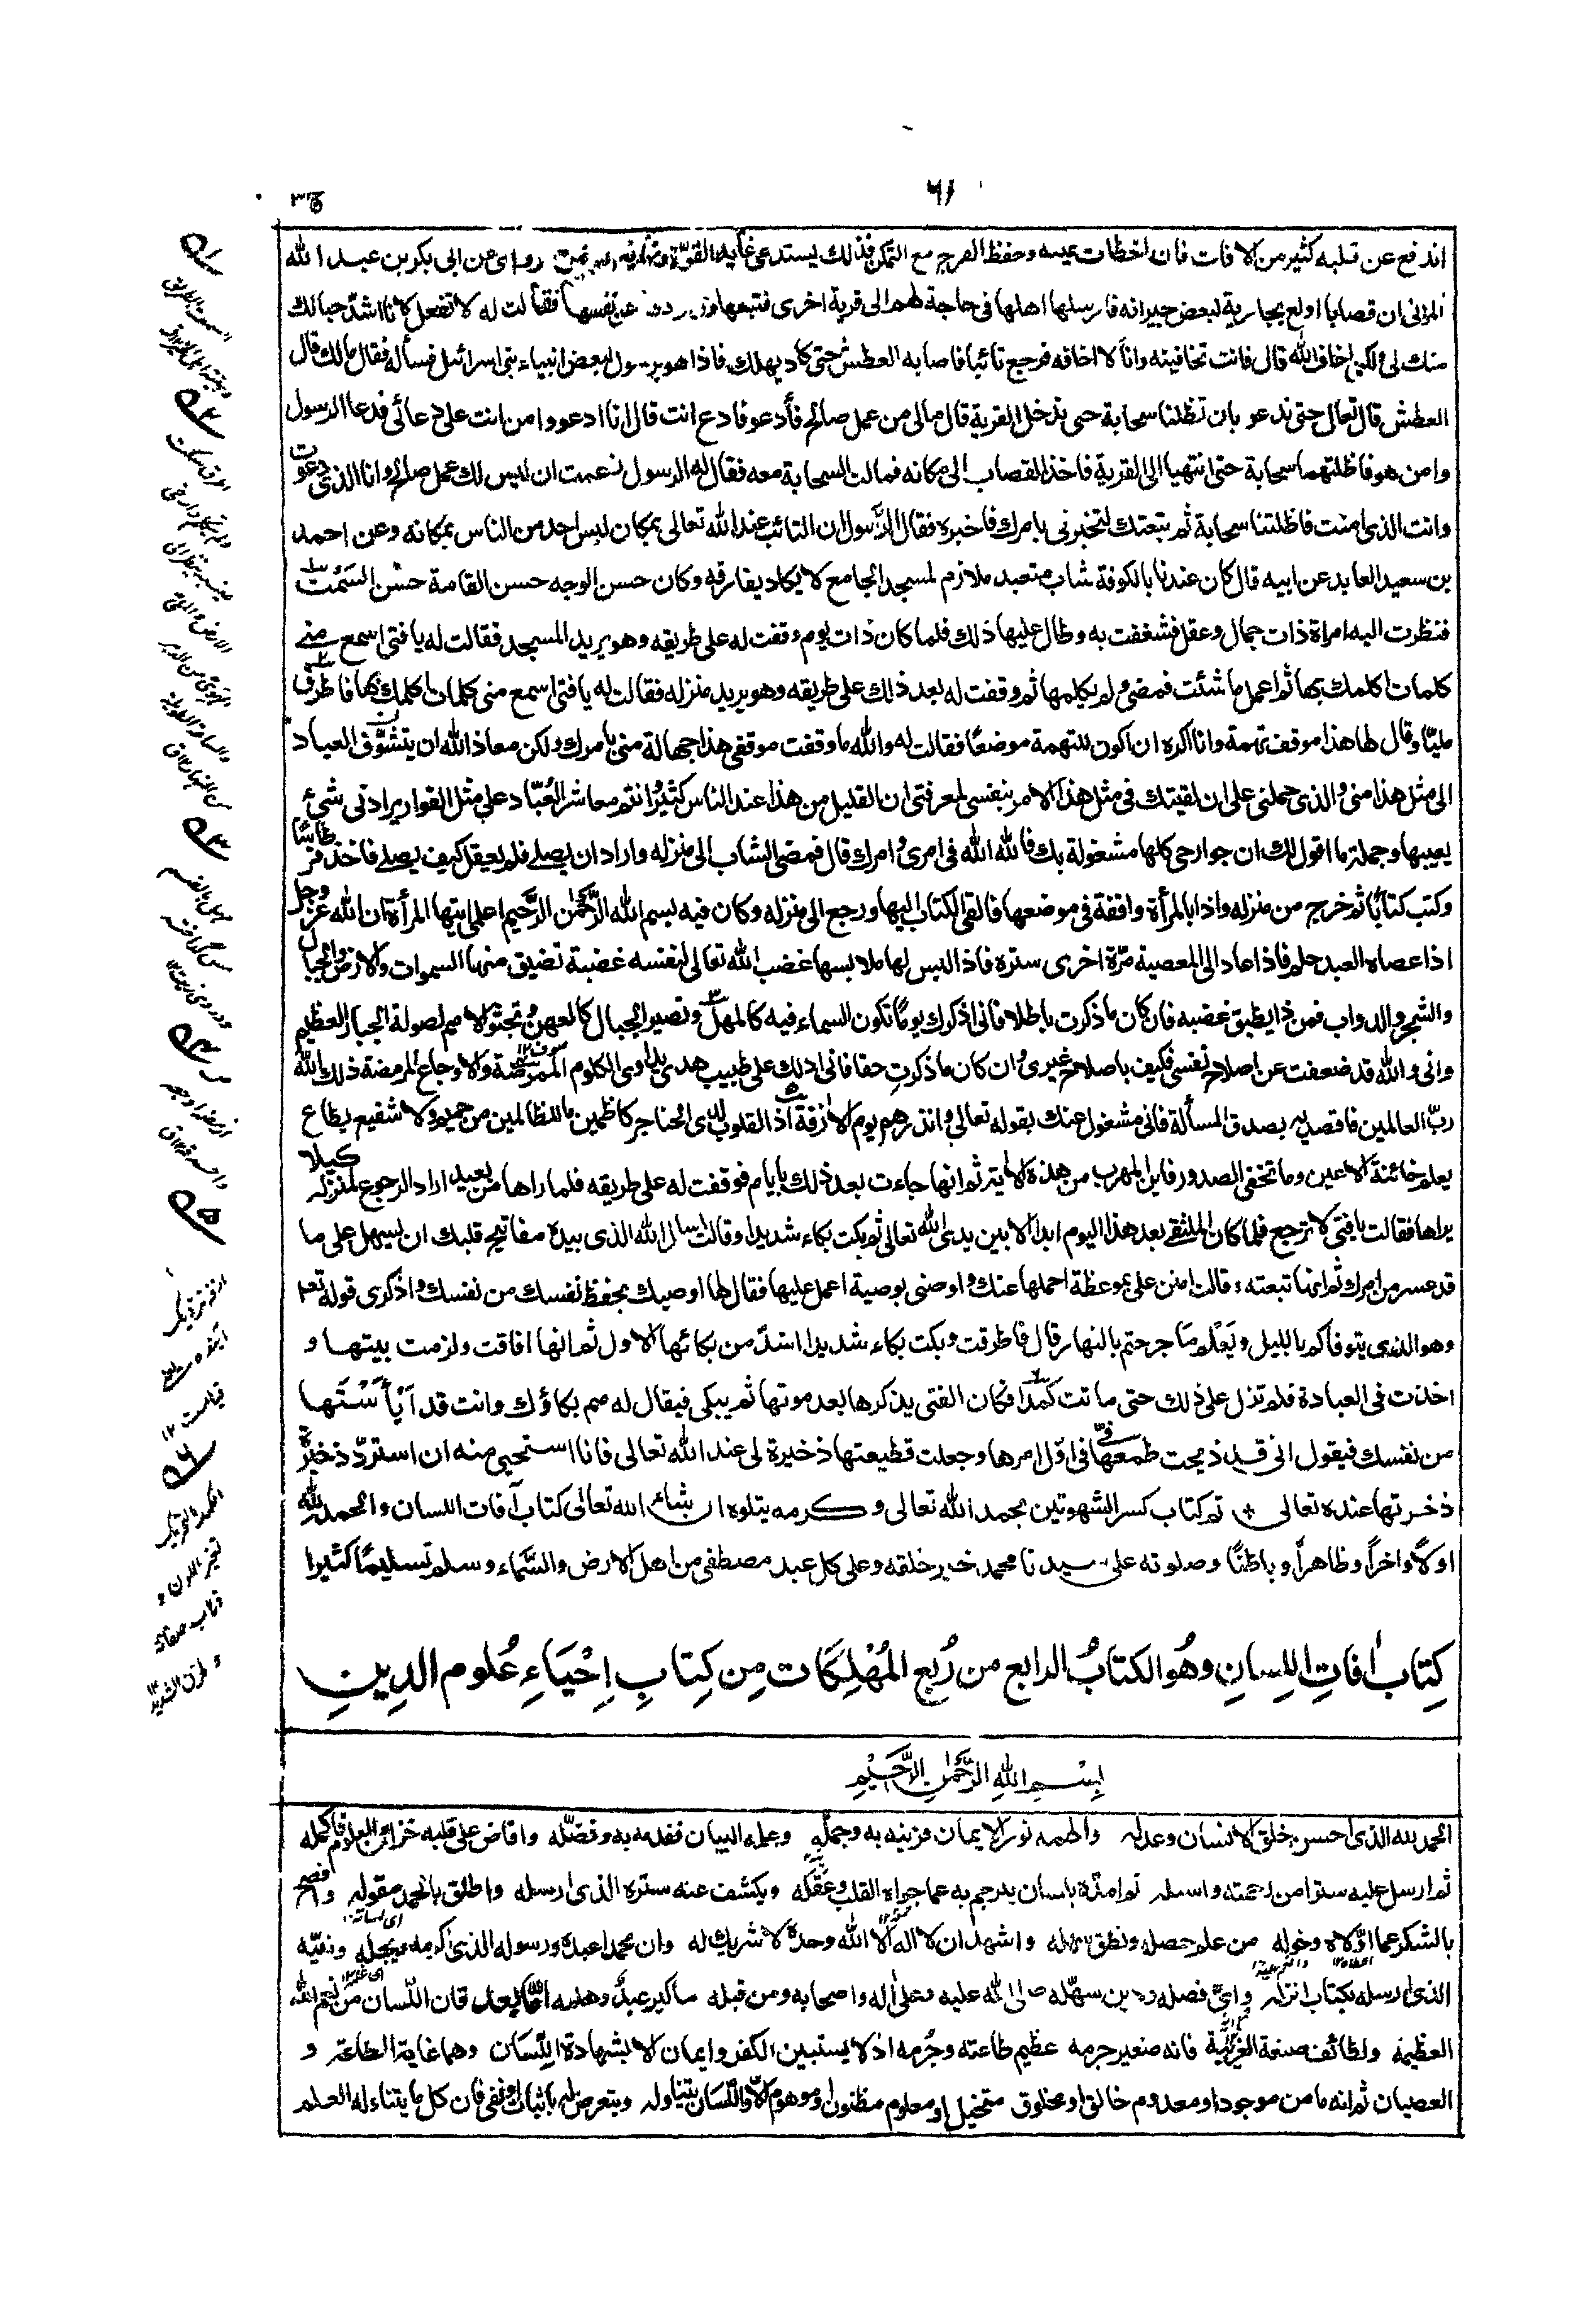 ٦١
ج٣
اندفع عن قلبه كثير من الافات فان اخطات عينه وحفظ الفرج مع التمكن فذلك يستدعى غاية القوة ونهاية روى عن ابى بكر بن عبد الله
المزنى ان قصابا اولع بجارية لبعض جيرانه فارسلها اهلها فى حاجة لهم الى قرية اخرى فتبعها عن نفسها فقالت له لا تفعل لانا اشد حبا لك
منك لى ولكنى اخاف الله قال فانت تخافينه وانا لا اخافه فرجع تائبا فاصابه العطش حتى كاد يهلك فاذا هو برسول لبعض انبياء بنى اسرائيل فسأله فقال مالك قال
العطش قال تعال حتى ندعو بان تظلنا سحابة حتى ندخل القرية قال مالى من عمل صالح فأدعو فادع انت قال انا ادعو وامن انت على دعائى فدعا الرسول
وامن هو فاظلتهما سحابة حتى انتهيا الى القرية فاخذ القصاب الى مكانه فمالت السحابة معه فقال له الرسول زعمت ان ليس لك عمل صالح وانا الذى دعوت
وانت الذى امنت فاظلتنا سحابة ثم تبعتك لتخبرنى بامرك فاخبره فقال الرسول ان التائب عند الله تعالى بمكان ليس احد من الناس بمكانه وعن احمد
بن سعيد العابد عن ابيه قال كان عندنا بالكوفة شاب متعبد ملازم لمسجد الجامع لا يكاد يفارقه وكان حسن الوجه حسن القامة حسن السمت
فنظرت اليه امراة ذات جمال وعقل فشغفت به وطال عليها ذلك فلما كان ذات يوم وقفت له على طريقه وهو يريد المسجد فقالت له يا فتى اسمع منى
كلمات اكلمك بها ثم اعمل ما شئت فمضى ولم يكلمها ثم وقفت له بعد ذلك على طريقه وهو يريد منزله فقالت له يا فتى اسمع منى كلمات اكلمك بها فاطرق
مليا وقال لها هذا موقف تهمة وانا اكره ان اكون للتهمة موضعا فقالت له والله ما وقفت موقفى هذا جهالة منى بامرك ولكن معاذ الله ان يتشوف العباد
الى مثل هذا منى والذى حملنى على ان لقيتك فى مثل هذا الامر بنفسى لمعرفتى ان القليل من هذا عند الناس كثير وانتم معاشر العباد على مثل القوارير ادنى شئ
يعيبها وجملة ما اقول لك ان جوارحى كلها مشغولة بك فالله الله فى امرى وامرك قال فمضى الشاب الى منزله واراد ان يصلى فلم يعقل كيف يصلى فاخذ قرطاسا
وكتب كتابا ثم خرج من منزله واذا بالمرأة واقفة فى موضعها فالقى الكتاب اليها ورجع الى منزله وكان فيه بسم الله الرحمن الرحيم اعلمى ايتها المرأة ان الله عز وجل
اذا عصاه العبد حلم فاذا عاد الى المعصية مرة اخرى ستره فاذا لبس لها ملابسها غضب الله تعالى لنفسه غضبة تضيق منها السموات والارض والجبال
والشجر والدواب فمن ذا يطيق غضبه فان كان ما ذكرت باطلا فانى اذكرك يوما تكون السماء فيه كالمهل وتصير الجبال كالعهن وتجثو الامم لصولة الجبار العظيم
وانى والله قد ضعفت عن اصلاح نفسى فكيف باصلاح غيرى وان كان ما ذكرت حقا فانى ادلك على طبيب هدى يداوى الكلوم الممرضة والاوجاع المرمضة ذلك الله
رب العالمين فاقصديه بصدق المسألة فانى مشغول عنك بقوله تعالى وانذرهم يوم الازفة اذ القلوب لدى الحناجر كاظمين ما للظالمين من حميم ولا شفيع يطاع
يعلم خائنة الاعين وما تخفى الصدور فاين المهرب من هذه الاية ثم انها جاءت بعد ذلك بايام فوقفت له على طريقه فلما راها من بعيد اراد الرجوع لمنزله كيلا
يراها فقالت يا فتى لا ترجع فلا كان الملتقى بعد هذا اليوم ابدا الا بين يدى الله تعالى ثم بكت بكاء شديدا وقالت اسال الله الذى بيده مفاتيح قلبك ان يسهل على ما
قد عسر من امرك ثم انها تبعته وقالت امنن على بموعظة احملها عنك واوصنى بوصية اعمل عليها فقال لها اوصيك بحفظ نفسك من نفسك واذكرى قوله تعـ
وهو الذى يتوفاكم بالليل ويعلم ما جرحتم بالنهار قال فاطرقت وبكت بكاء شديدا اشد من بكائها الاول ثم انها افاقت ولزمت بيتها و
اخذت فى العبادة فلم تزل على ذلك حتى ماتت كمدا فكان الفتى يذكرها بعد موتها ثم يبكى فيقال له مم بكاؤك وانت قد ايأستها
من نفسك فيقول انى قد ذبحت طمعها فى اول امرها وجعلت قطيعتها ذخيرة لى عند الله تعالى فانا استحيى منه ان استرد ذخيرة
ذخرتها عنده تعالى تم كتاب كسر الشهوتين بحمد الله تعالى وكرمه يتلوه ان شاء الله تعالى كتاب آفات اللسان والحمد لله
اولا واخرا وظاهرا وباطنا وصلوته على سيدنا محمد خير خلقه وعلى كل عبد مصطفى من اهل الارض والسماء وسلم تسليما كثيرا
كِتَاب اٰفاتِ اللِسانِ وهُو الكتابُ الرابع من رُبع المُهْلِكَات مِن كِتابِ اِحْيَاءِ عُلوم الدِينِ
بِسْمِ اللهِ الرَّحْمٰنِ الرَّحِيْمِ
الحمد لله الذى احسن خلق الانسان وعدله والهمه نور الايمان فزينه به وجمله وعلمه البيان فقدمه به وفضله وافاض على قلبه خزائن العلوم فاكمله
ثم ارسل عليه سترا من رحمته واسبله ثم امده بلسان يترجم به عما حواه القلب وعقله ويكشف عنه ستره الذى ارسله واطلق بالحمد مقوله وافصح
بالشكر عما اولاه وخوله من علم حصله ونطق سهله واشهد ان لا اله الا الله وحده لا شريك له وان محمدا عبده ورسوله الذى اكرمه وبجله ونبيه
الذى ارسله بكتاب انزله واى فصله ودين سهله صلى الله عليه وعلى اله واصحابه ومن قبله ما كبر عبد وهلله اما بعد فان اللسان من نعم الله
العظيمة ولطائف صنعة الغريبة فانه صغير جرمه عظيم طاعته وجرمه اذ لا يستبين الكفر وايمان الا بشهادة اللسان وهما غاية الطاعة و
العصيان ثم انه ما من موجود او معدوم خالق او مخلوق متخيل او معلوم مظنون او موهوم الا واللسان يتناوله ويتعرض له باثبات او نفى فان كل ما يتناوله العلم